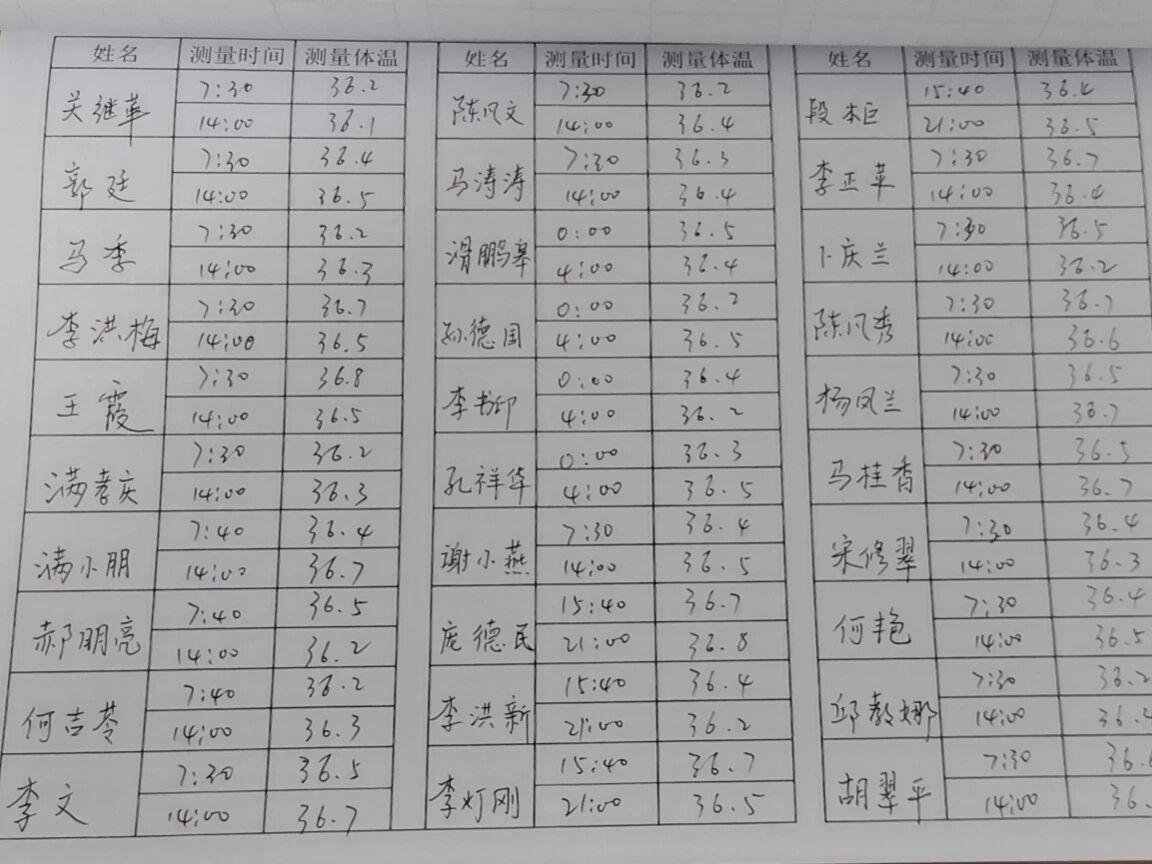 姓名 测量时间 测量体温 姓名 测量时间 测量体温 姓名 测量时间 测量体温
关继革 7:30 36.2 陈凤文 7:30 36.2 段本巨 15:40 36.4
14:00 36.1 14:00 36.4 21:00 36.5
郭廷 7:30 36.4 马涛涛 7:30 36.3 李正苹 7:30 36.7
14:00 36.5 14:00 36.4 14:00 36.4
马季 7:30 36.2 滑鹏皋 0:00 36.5 卜庆兰 7:30 36.5
14:00 36.3 4:00 36.4 14:00 36.2
李洪梅 7:30 36.7 孙德国 0:00 36.2 陈凤秀 7:30 36.7
14:00 36.5 4:00 36.5 14:00 36.6
王霞 7:30 36.8 李书印 0:00 36.4 杨凤兰 7:30 36.5
14:00 36.5 4:00 36.2 14:00 36.7
满孝庆 7:30 36.2 孔祥华 0:00 36.3 马桂香 7:30 36.5
14:00 36.3 4:00 36.5 14:00 36.7
满小朋 7:40 36.4 谢小燕 7:30 36.4 宋修翠 7:30 36.4
14:00 36.7 14:00 36.5 14:00 36.3
郝明亮 7:40 36.5 庞德民 15:40 36.7 何艳 7:30 36.4
14:00 36.2 21:00 36.8 14:00 36.5
何吉苓 7:40 36.2 李洪新 15:40 36.4 邱教娜 7:30 36.2
14:00 36.3 21:00 36.2 14:00 36.
李文 7:30 36.5 李灯刚 15:40 36.7 胡翠平 7:30 36.
14:00 36.7 21:00 36.5 14:00 36.